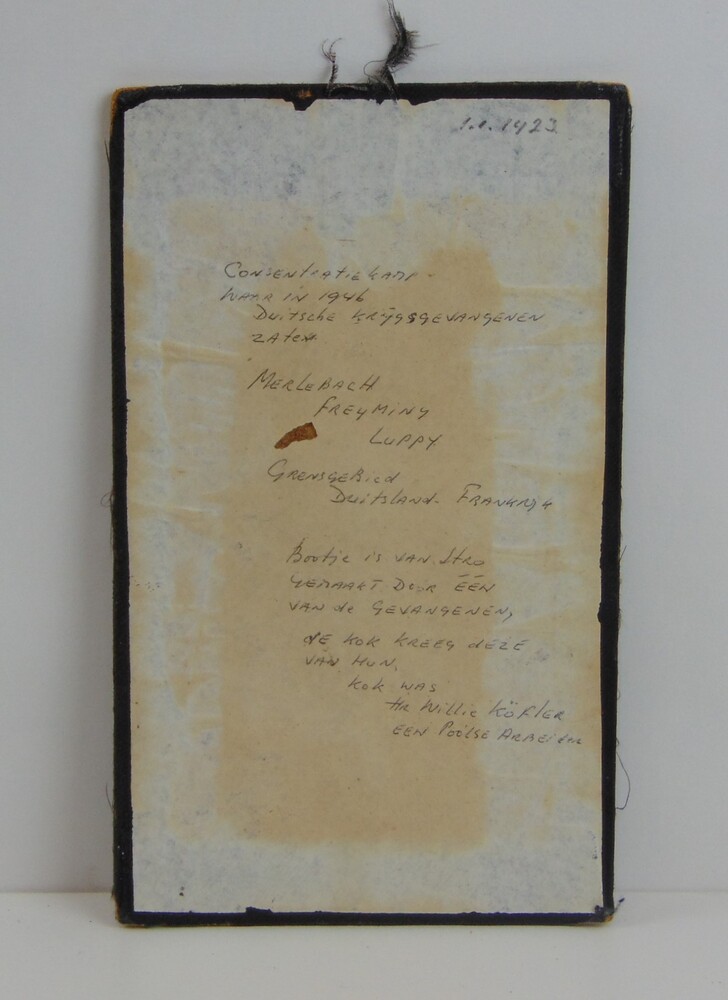 1.1.1423
Consentratiekamp
waar in 1946
Duitsche Krijgsgevangenen
zaten
Merlebach
Freyminy
Luppy
Grensgebied
Duitsland- Frankrijk
Bootje is van stro
gemaakt door één
van de gevangenen,
de kok kreeg deze
van hun.
kok was
Hr Willie Köfler
een Poolse Arbeider